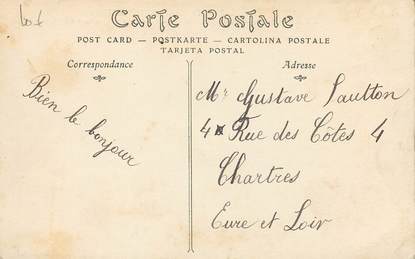 Carte Postale
POST CARD — POSTKARTE — CARTOLINA POSTALE
TARJETA POSTAL
Correspondance
Adresse
Bien le bonjour
Mr Gustave Saulton
4 Rue des Côtes 4
Chartres
Eure et Loir